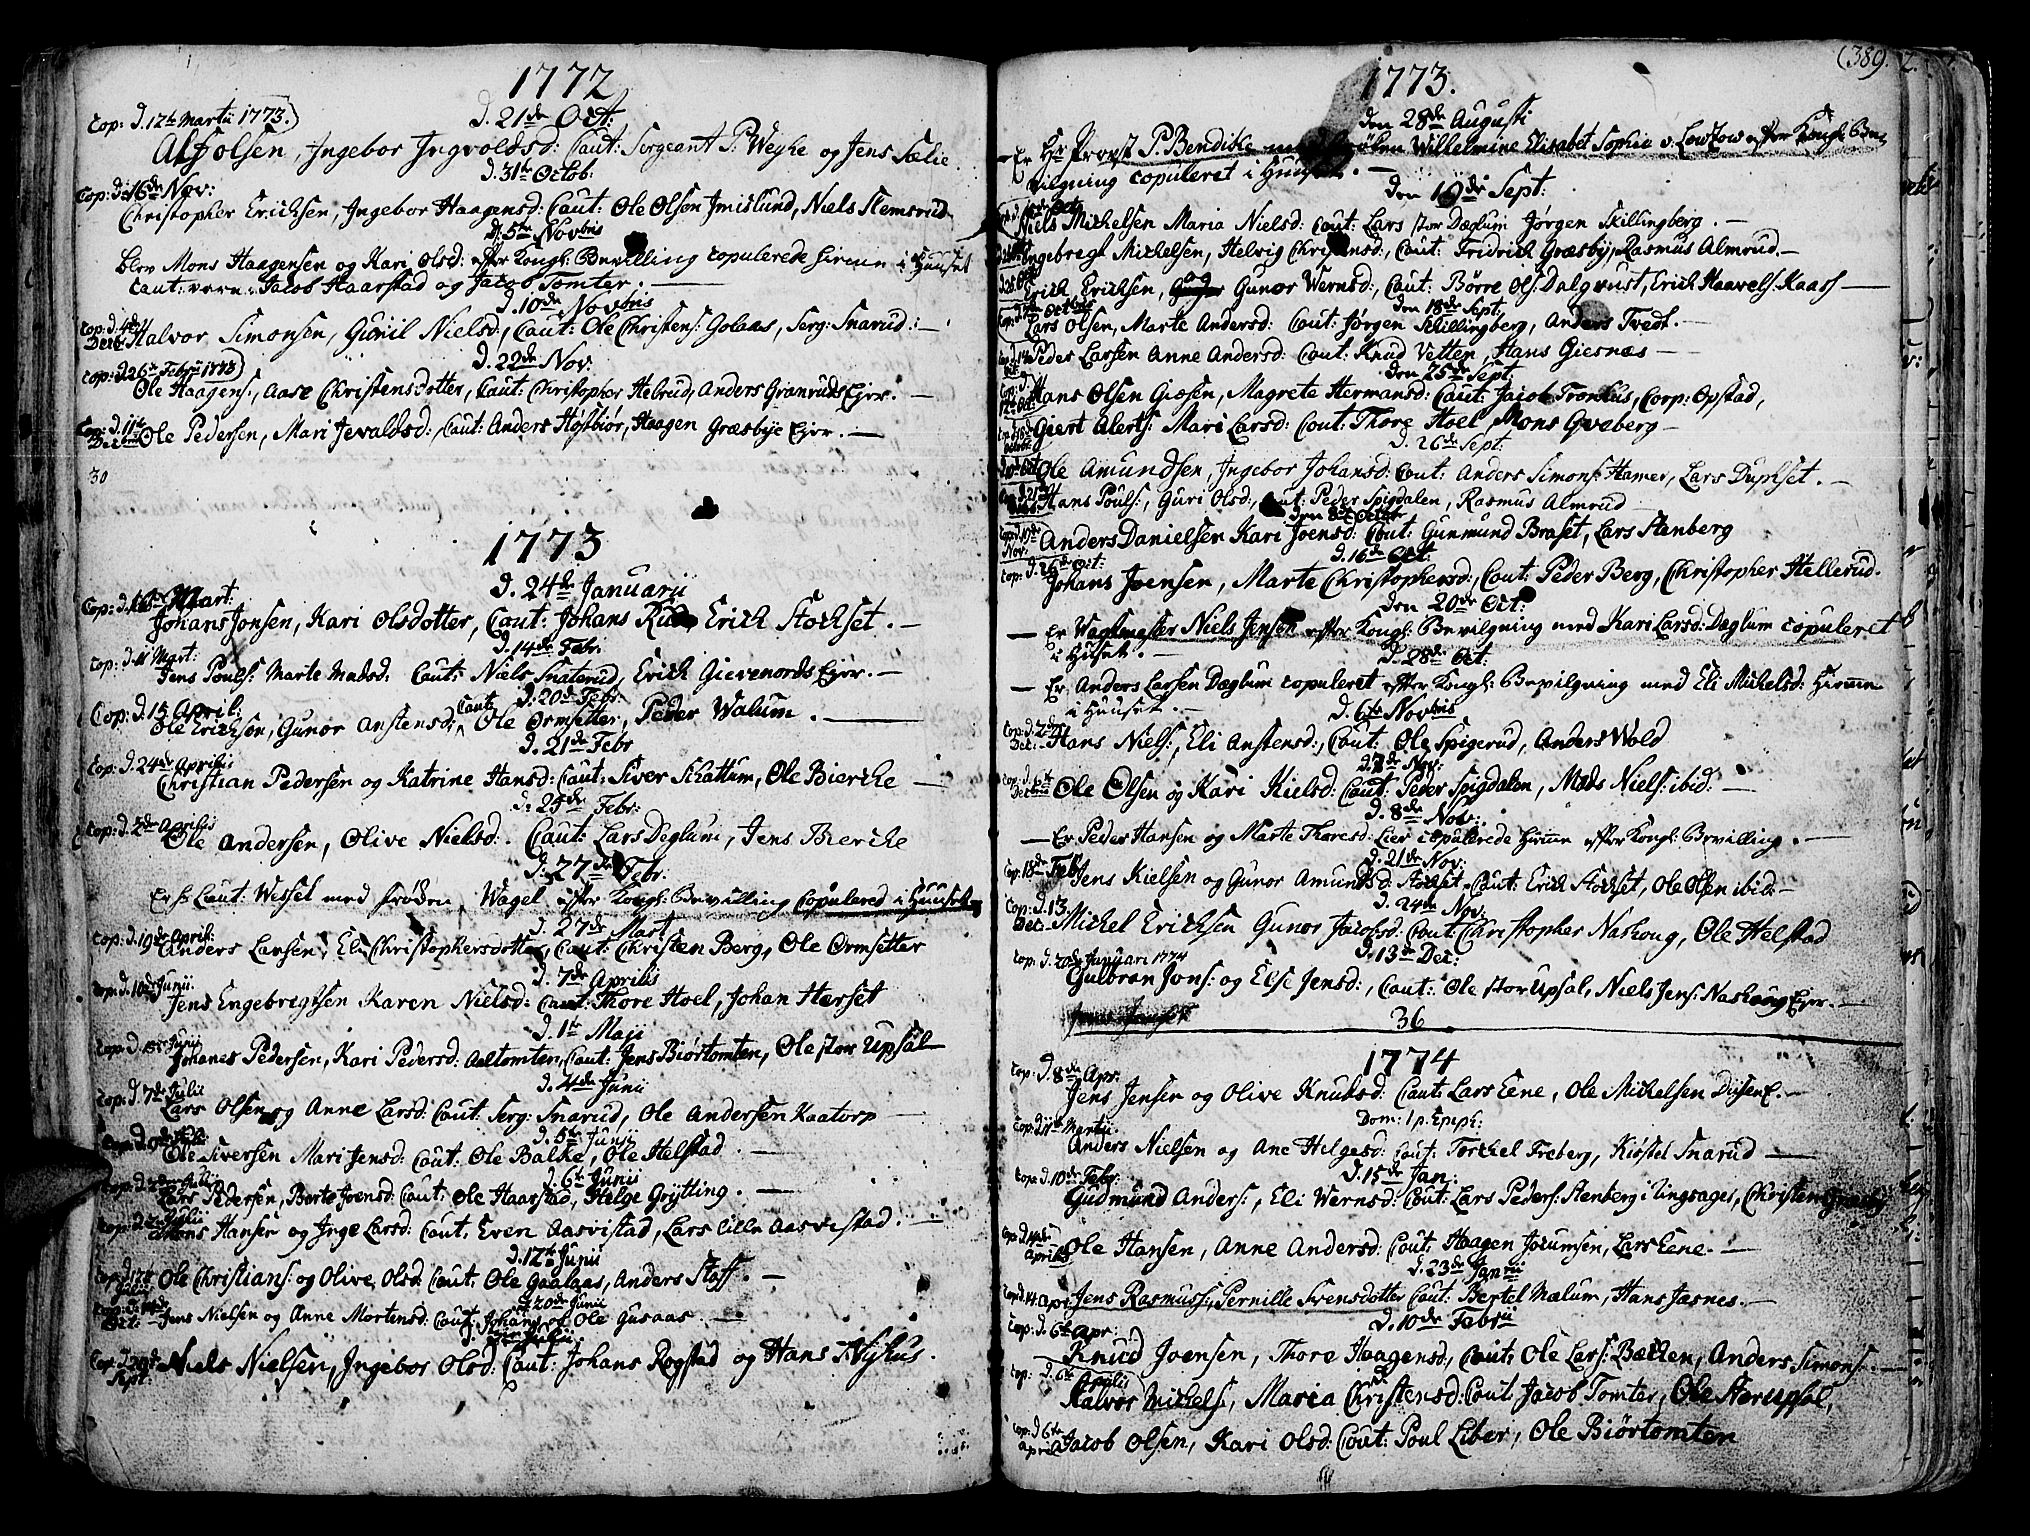 1772
Cop: d. 12te Martii 1773.)
d. 21de Oct:
Olsen, Ingebor Ingvoldsd: Caut: Sergeant P. Weyhe og Jens Sælie
d. 31te Octob:
Cop: d. 16de Nov:
Christopher Erichsen, Ingebor Haagensd: Caut: Ole Olsen Imislund, Niels Stemsrud
d. 5te Novbris
blev Mons Haagensen og Kari Olsd: efter Kongl: Bevilling copulerede hieme i Huuset
Caut: vare Jacob Haarstad og Jacob Tomter. —
d. 10de Novbris
Cop: d. 4de Decbr
Halvor Simonsen, Gunil Nielsd: Caut: Ole Christens: Golaas, Serg: Snarud. —
d. 22de Nov:
Cop: d. 26te Febrii 1773)
Ole Haagens:, Aase Christensdotter, Caut: Christopher Helrud, Anders Granruds Ejer. —
Cop: d. 11te Decbris
Ole Pedersen, Mari Jevaldsd: Caut: Anders Høstbiør, Haagen Græsbye Ejer. —
30
1773
d. 24de Januarii
Cop: d. Mart:
Johans Jonsen, Kari Olsdotter, Caut: Johans Erich Stochset. —
d. 14de Febr:
Cop: d. 11 Mart:
Jens Pouls: Marte Madsd: Caut: Niels Snaterud, Erich Gievenords Ejer. —
d. 20de Febr:
Cop: d. 15 April:
Ole Erichsen, Gunor Anstensd: Caut: Ole Ormsetter, Peder Walum. —
d. 21de Febr
Cop: d. 24de Aprilis
Christian Pedersen og Katrine Hansd: Caut: Siver Schattum, Ole Bierche —
d. 25de Febr:
Cop: d. 2de Aprilis
Ole Andersen, Olive Nielsd: Caut: Lars Deglum, Jens Bierche
d. 27de Febr:
Er Hr Lieut: Wessel med frøken Wagel efter Kongl: Bevilling Copulered i Huuset
d. 27de Mart
Cop: d. 19de April:
Anders Larsen, Eli Christophersdotter, Caut: Christen Berg, Ole Ormsetter
d. 7de Aprilis
Cop: d. 10de Junii.
Jens Engebregtsen Karen Nielsd: Caut: Thore Hoel, Johan Hærset
d. 1te Maji
Cop: d. Junii
Johanes Pedersen, Kari Pedersd: Aaltomten, Caut: Jens Biørtomten, Ole stor Upsal —
d. 4de Junii
Cop: d. 7de Julii
Lars Olsen og Anne Larsd: Caut: Serg: Snarud, Ole Andersen Kaatorp —
d. 5te Junii
Cop: d. 9de Julii
Ole Siversen Mari Jensd: Caut: Ole Balke, Ole Helstad. —
d. 6te Junii
Cop: d. Julii
Lars Pedersen, Berte Joensd: Caut: Ole Haarstad, Helge Grytting. —
Cop: d. Julii
Mons Hansen og Inge Larsd: Caut: Even Aasvistad, Lars lille Aasvestad. —
d. 12te Junii
Cop: d. Julii
Ole Christians: og Olive Olsd: Caut: Ole Gaalaas, Anders Staff. —
d. 20de Junii
Cop: d. 14de Oct:
Jens Nielsen og Anne Mortensd: Caut: Johans og Ole Gusaas. —
d. Julii
Cop: d. Sept
Niels Nielsen, Ingebor Olsd: Caut: Johans Rogstad og Hans Nyhus.
(389.
1773.
den 28de Augusti
— Er Hr Provst P. Bendike med frøken Wilhelmine Elisabet Sophie v. Lowzow efter Kongl: Be-
vilgning copuleret i Huuset. —
den Sept:
Niels Michelsen Maria Nielsd: Caut: Lars stor Dæglum Jørgen Skillingberg. —
Ingebregt Michelsen, Helvig Christensd: Caut: Fridrich Græsby, Rasmus Almrud —
Erich Erichsen, Gunor Wernsd:, Caut: Børre Ols: Dalqvust, Erich Haavels: Kaass —
den 18de Sept,
Lars Olsen, Marte Andersd: Caut: Jørgen Schillingberg, Anders Tvedt. —
Peder Larsen Anne Andersd: Caut: Knud Vetten, Hans Giesnæs —
den 25de Sept
Cop: d. 12te Oct:
Hans Olsen Giøsen, Magrete Hermansd: Caut: Jacob Tronhus, Corp: Opstad,
Giert Alerts: Mari Larsd: Caut: Thore Hoel Mons Gvæberg —
d. 26te Sept:
Ole Amundsen, Ingebor Johansd: Caut: Anders Simons: Hamer, Lars Duphset. —
Hans Pouls:, Guri Olsd: Caut: Peder Spigdalen, Rasmus Almrud —
den 8de Octob
Cop: d. 19de Nov:
Anders Danielsen Kari Joensd: Caut: Gunmund Braset, Lars Stenberg
d. 16de Oct:
Cop: d. 26te Oct:
Johans Joensen, Marte Christophersd:, Caut: Peder Berg, Christopher Hellerud.
den 20de Oct:
— Er Wagtmester Niels Jensen efter Kongl: Bevilgning med Kari Larsd: Dæglum copuleret
i Huset. —
d. 28de Oct:
— Er Anders Larsen Dæglum copuleret efter Kongl: Bevilgning med Eli Michelsd: hieme
i Huuset. —
d. 6te Novbris
Cop: d. 2den Dec:
Hans Niels:, Eli Anstensd:, Caut: Ole Spigerud, Anders Wold
d. 7de Nov:
Ole Olsen og Kari Kielsd: Caut: Peder Spigdalen, Mads Niels: ibid: —
d. 8de Nov:
— Er Peder Hansen og Marte Thoresd: Lier copulerede hieme efter Kongl: Bevilling. —
d. 21de Nov:
Cop: 18de Feb:
Jens Kielsen og Gunor Amundsd: Stochset Caut: Erich Stochset, Ole Olsen ibid: —
d. 24de Nov:
Cop: d. 13 Dec:
Michel Erichsen Gunor Jacobsd: Caut: Christopher Nashoug, Ole Helstad
d. 13te Dec:
Cop: d. 20de Januari 1774
Gulbran Jons: og Else Jensd:, Caut: Ole stor Upsal, Niels Jens: Nashoug Ejer. —
36
1774
Cop: d. 8de Apr:
Jens Jensen og Olive Knudsd: Caut: Lars Eene, Ole Michelsen Disen E. —
Dom: 1 p: Epiph:
Cop: d. Martii.
Anders Nielsen og Ane Helgesd: Caut: Torchel Freberg, Kiøstel Snarud —
d. 15de Jan:
Cop: d. 10de Febr:
Gudmund Anders:, Eli Wernsd: Caut: Lars Peders: Stenberg i Ringsager, Christen
Cop: d. 14de April
Ole Hansen, Anne Andersd: Caut: Haagen Jorumsen, Lars Eene. —
d. 23de Janrii
Cop: d. 14 Apr:
Jens Rasmuss:, Pernille Svensdotter Caut: Bertel Mælum, Hans Jasnes. —
d. 10de Febrii
Cop: d. 6te Apr:
Knud Joensen, Thore Haagensd, Caut: Ole Lars: Bæcken, Anders Simons: —
Cop: d. 6te Aprilis
Halvor Michels:, Maria Christensd: Caut: Jacob Tomter, Ole Storupsal,
Cop: d. 6te April
Jacob Olsen, Kari Olsd: Caut: Poul Liber, Ole Biørtomten